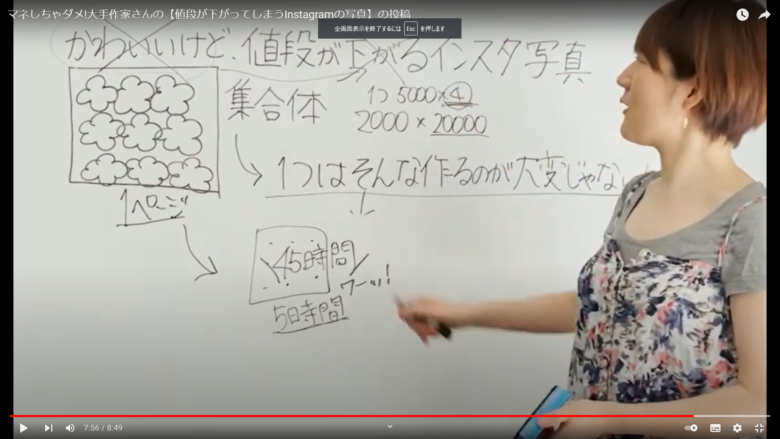 マネしちゃダメ!大手作家さんの【値段が下がってしまうInstagramの写真】の投稿
全画面表示を終了するには Esc を押します
かわいいけど、値段が下がるインスタ写真
集合体
1つ 5000×④
2000×20000
1つはそんな作るのが大変じゃない
1ページ
45時間
ワーッ!
5日寺間
7:56 / 8:49